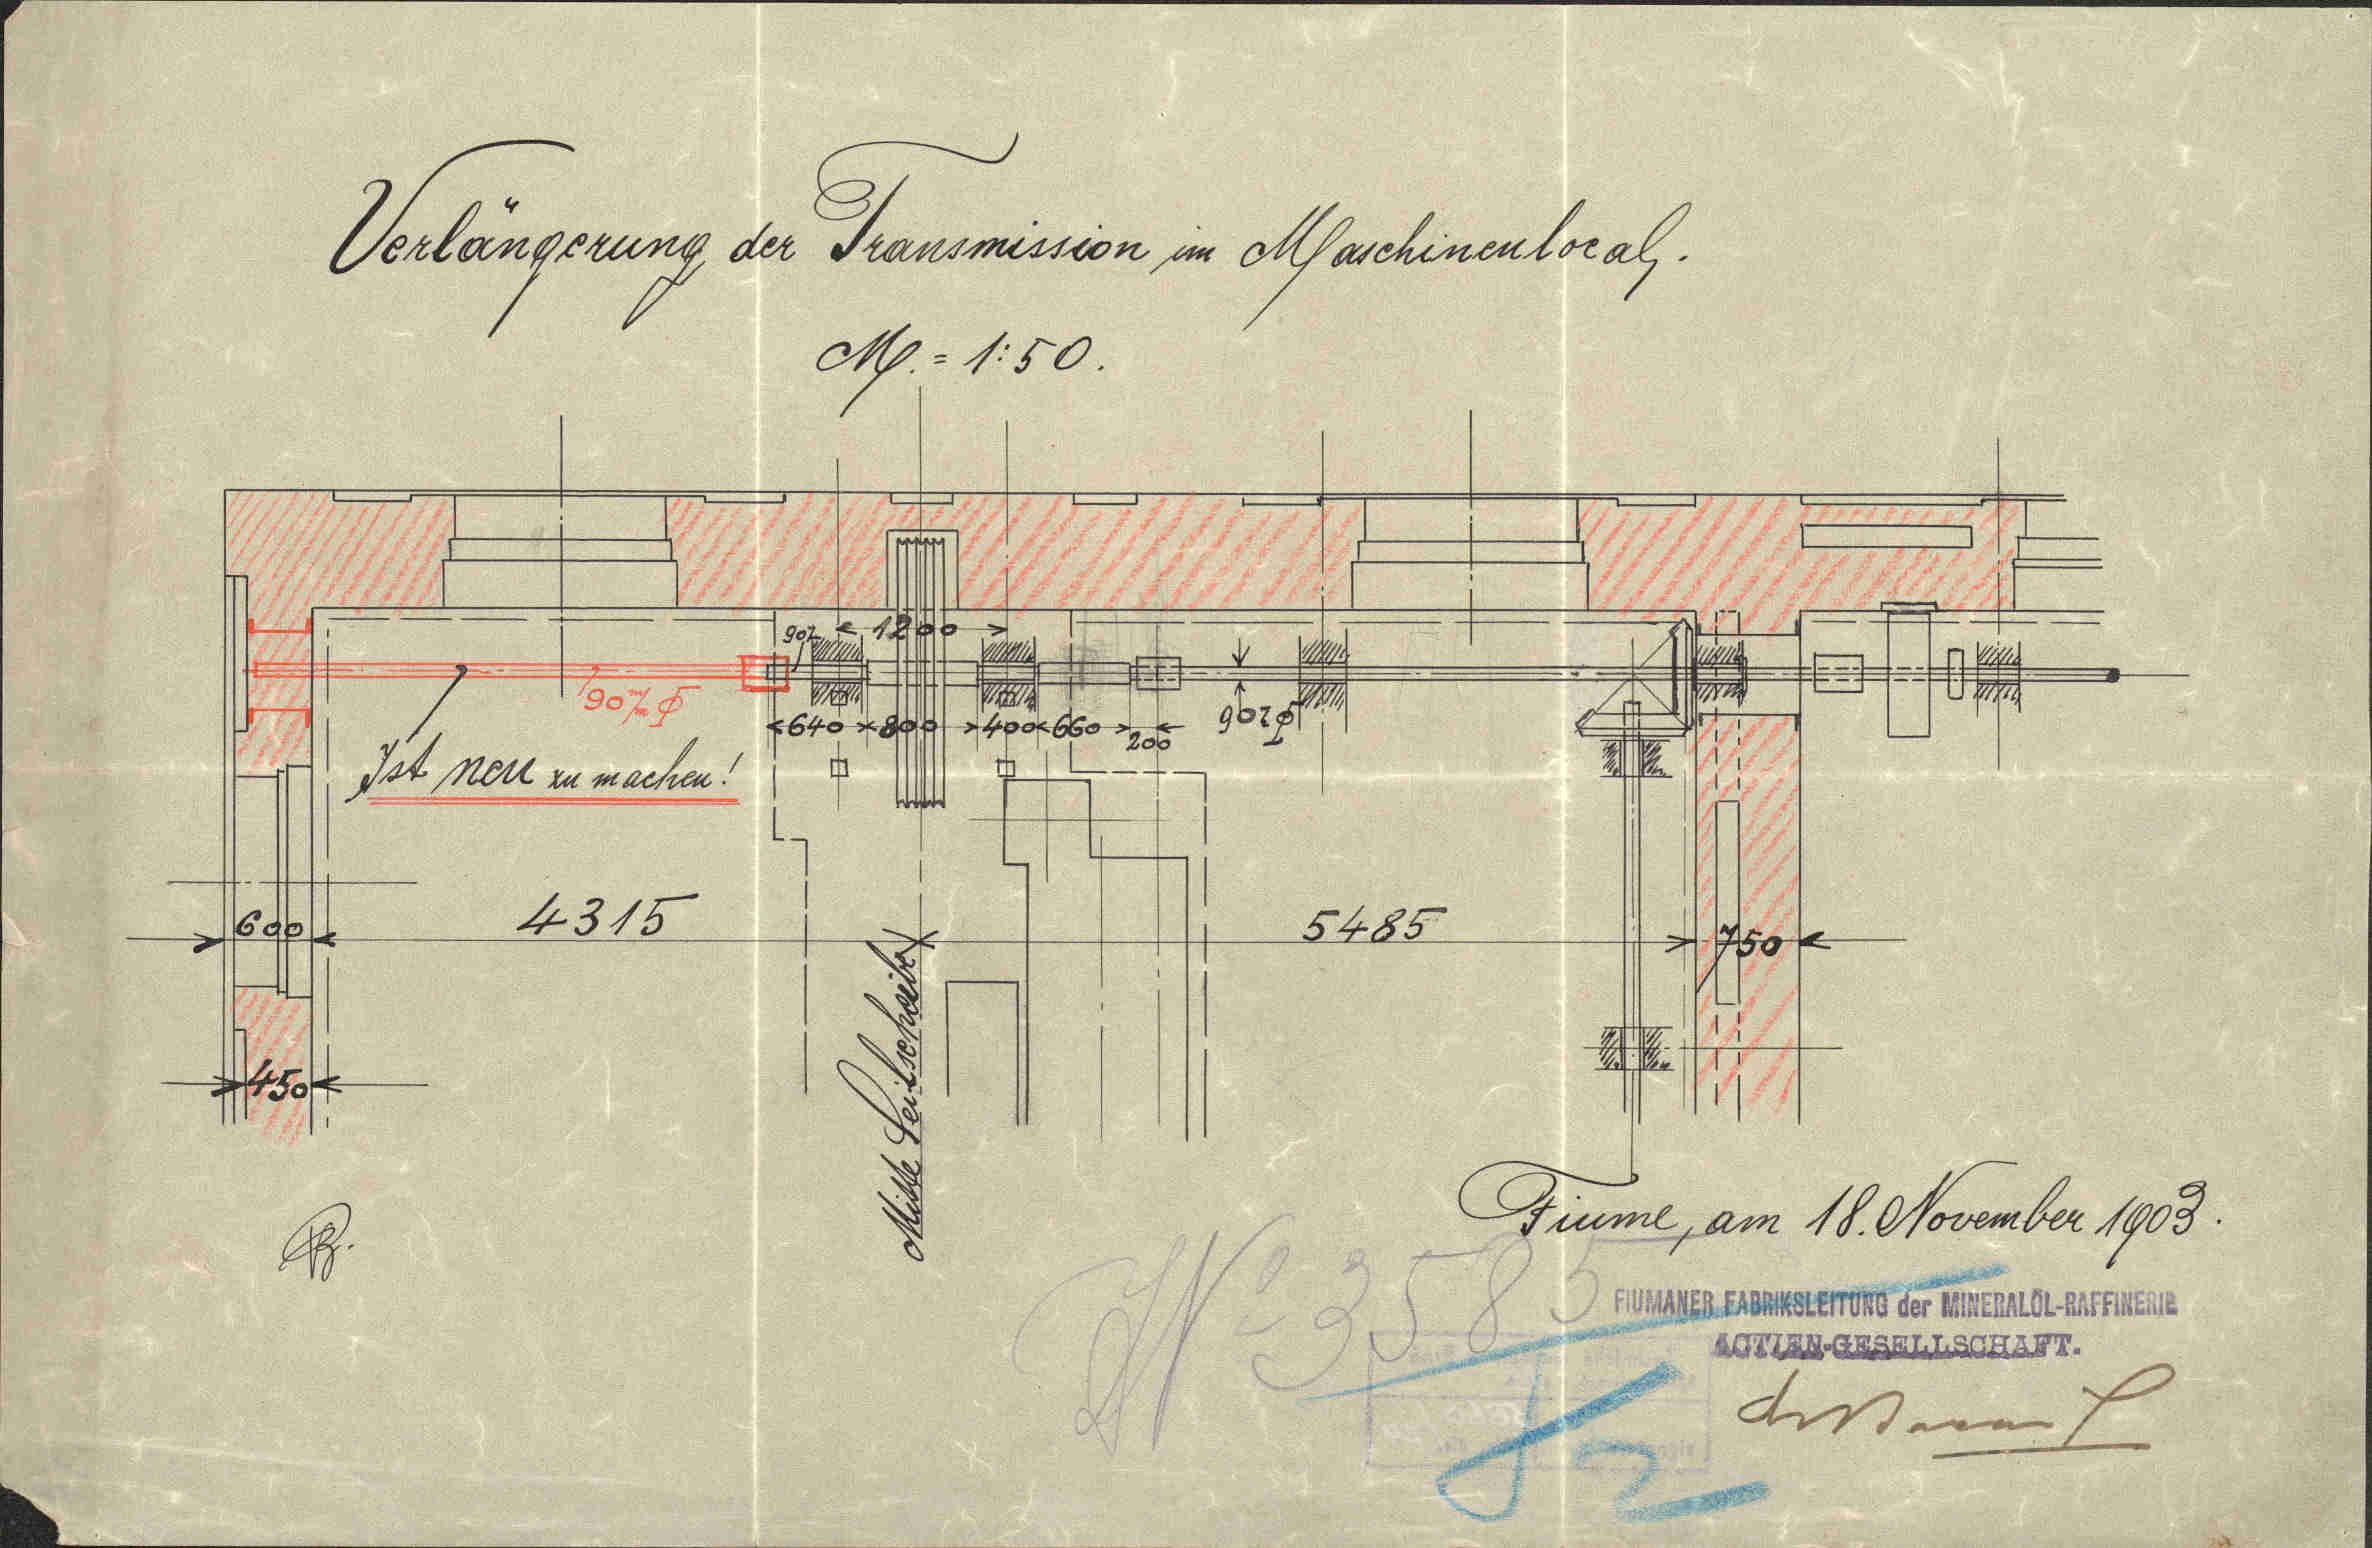 Verlängerung der Transmission im Maschinenlocal.
M. = 1:50.
1200
90
90 m/m Φ
640 800 400 660 200
90 Φ
Ist neu zu machen!
600 4315 5485 750
450
Mitte Seilscheibe
Fiume, am 18. November 1903.
No 3585
FIUMANER FABRIKSLEITUNG der MINERALÖL-RAFFINERIE
ACTIEN-GESELLSCHAFT.